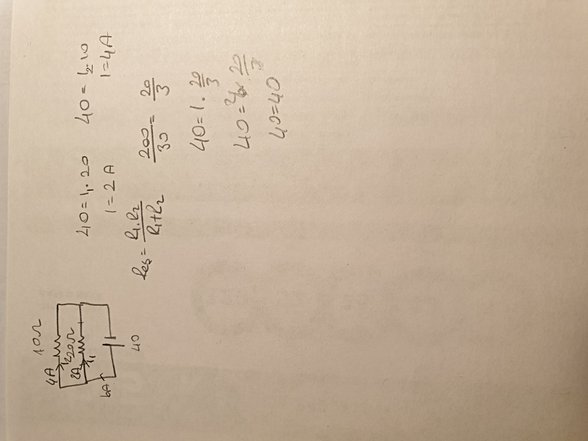 10Ω
4A
20Ω
2A I₁
6A
40
40 = I₁ · 20
I = 2 A
40 = I₂ · 10
I = 4 A
Req = R₁ · R₂ / R₁ + R₂
200 / 30 = 20 / 3
40 = I · 20 / 3
40 = 6 · 20 / 3
40 = 40